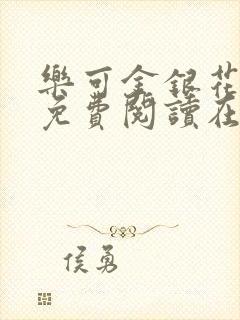 樂可金銀花
免費閱讀在
侯勇